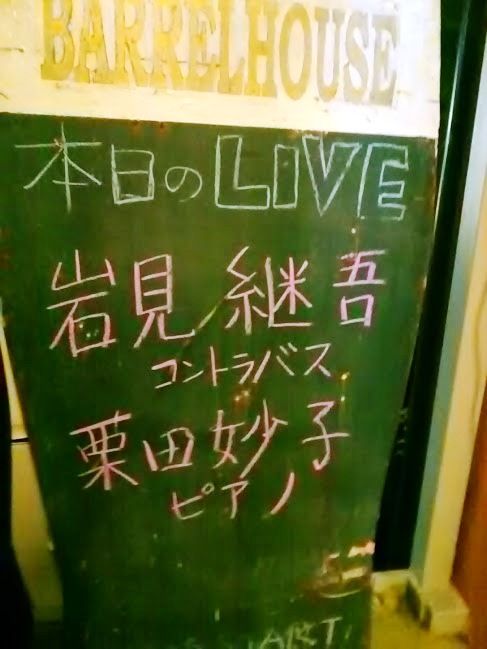 BARRELHOUSE
本日のLIVE
岩見継吾
コントラバス
栗田妙子
ピアノ